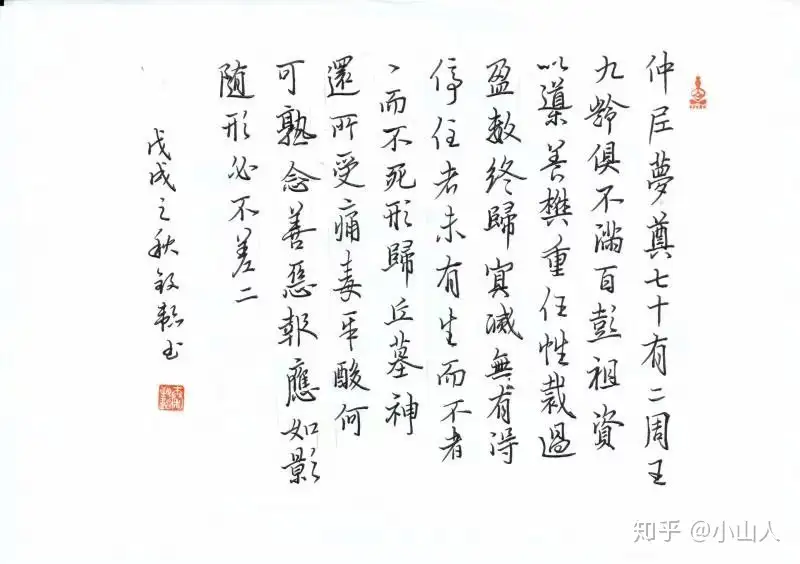 仲尼夢奠七十有二周王
九齡俱不滿百彭祖資
以導養樊重任性裁過
盈數終歸冥滅無有得
停住者未有生而不老
丶而不死形歸丘墓神
還所受痛毒辛酸何
可熟念善惡報應如影
随形必不差二
戊戌之秋
知乎 @小山人